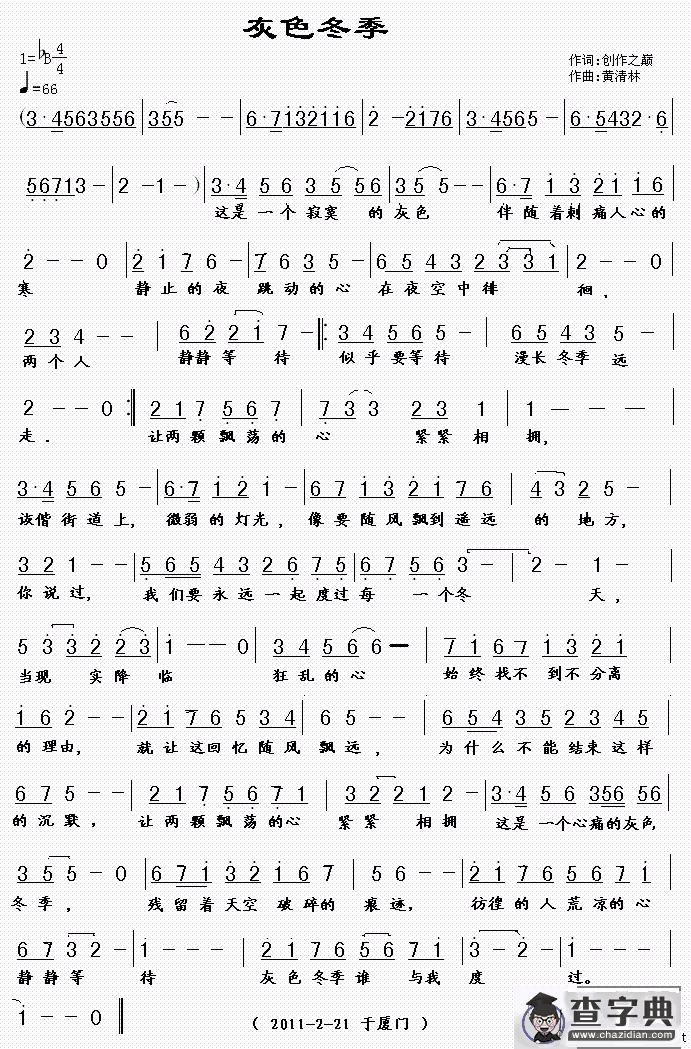 灰色冬季
1=♭B 4/4
作词:创作之巅
♩=66
作曲:黄清林
(3·4563556 | 355 - - | 6·713̇2̇1̇1̇6 | 2̇ - 2̇1̇76 | 3·4565 - | 6·5432·6
56713 - | 2 - 1 - ) | 3·4 5 6 3 5 56 | 3 5 5 - - | 6·7 1̇ 3̇ 2̇1̇ 1̇6
这是一个寂寞 的灰色 伴随着刺痛人心的
2̇ - - 0 | 2̇ 1̇ 7 6 - | 7 6 3 5 - | 6 5 4 3 2 3 3 1 | 2 - - 0
寒 静止的夜 跳动的心 在夜空中徘 徊,
2 3 4 - - | 6 2̇ 2̇ 1̇ 7 - |: 3 4 5 6 5 - | 6 5 4 3 5
两个人 静静等 待 似乎要等待 漫长冬季 远
2 - - 0 :| 2 1 7 5 6 7 | 7 3 3 2 3 1 | 1 — —
走. 让两颗飘荡的 心 紧紧相 拥,
3·4 5 6 5 - | 6·7 1̇ 2̇ 1̇ - | 6 7 1̇ 3̇ 2̇ 1̇ 7 6 | 4 3 2 5 -
诙偕街道上, 微弱的灯光, 像要随风飘到遥远 的 地方,
3 2 1 - - | 5 6 5 4 3 2 6 7 5 | 6 7 5 6 3 - | 2 - 1 -
你说过, 我们要永远一起度过每 一个冬 天,
5 3 3 2 2 3 | 1 - - 0 | 3 4 5 6 6 — | 7 1̇ 6 7 1̇ 3̇ 2̇ 1̇
当现 实降临 狂乱的心 始终找不 到不分离
1̇ 6 2̇ - - | 2̇ 1̇ 7 6 5 3 4 | 6 5 - - | 6 5 4 3 5 2 3 4 5
的理由, 就让这回忆随风 飘远, 为什么不能结束这样
6 7 5 - - | 2 1 7 5 6 7 1 | 3 2 2 1 2 - | 3·4 5 6 3 56 56
的沉默, 让两颗飘荡的心 紧紧 相拥 这是一个心痛的灰色,
3 5 5 - 0 | 6 7 1̇ 3̇ 2̇ 1̇ 6 | 1̇ 2̇ - - | 2̇ 1̇ 7 6 5 6 7 1̇
冬季, 残留着天空破碎的 痕迹, 彷徨的人荒凉的心
6 7 3̇ 2̇ - | 1̇ - - - | 2̇ 1̇ 7 6 5 6 7 1̇ | 3̇ - 2̇ - | 1̇ - - -
静静等 待 灰色冬季谁 与我 度 过。
1̇ - - 0 ‖
( 2011-2-21 于厦门 )
查字典
www.chazidian.com
t